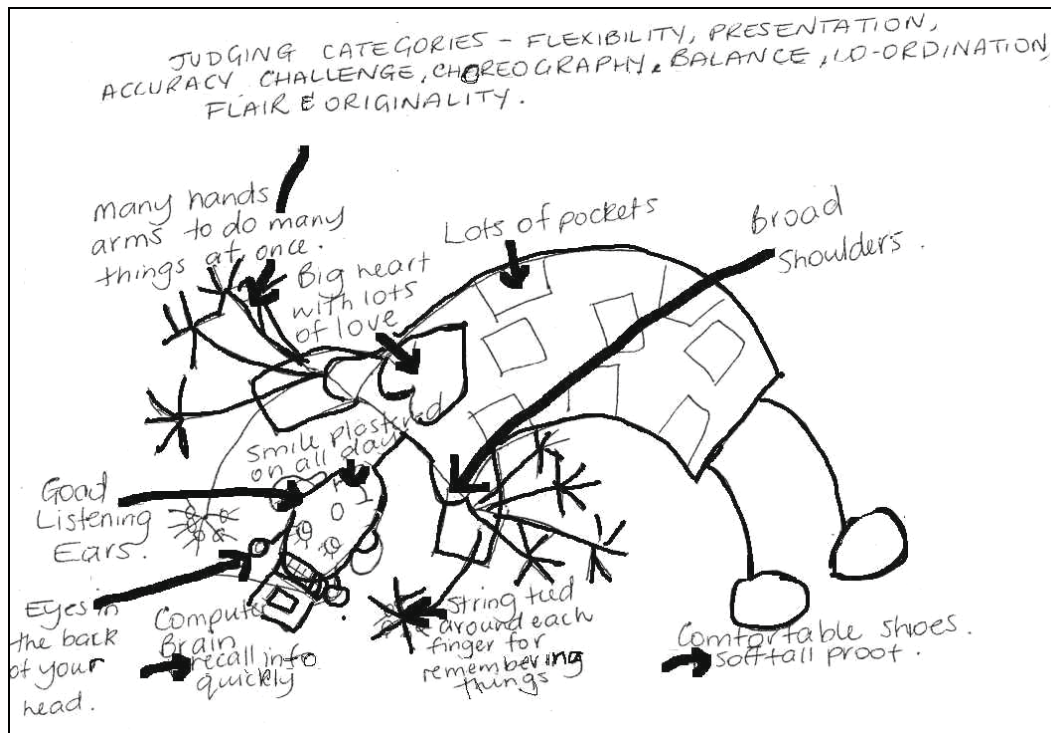 JUDGING CATEGORIES - FLEXIBILITY, PRESENTATION,
ACCURACY CHALLENGE, CHOREOGRAPHY, BALANCE, CO-ORDINATION,
FLAIR & ORIGINALITY.
many hands
arms to do many
things at once.
Big heart
with lots
of love
Lots of pockets
Broad
Shoulders.
Smile plastered
on all day
Good
Listening
Ears.
Eyes in
the back
of your
head.
Computer
Brain
recall info
quickly
String tied
around each
finger for
remembering
things
Comfortable shoes.
proof.